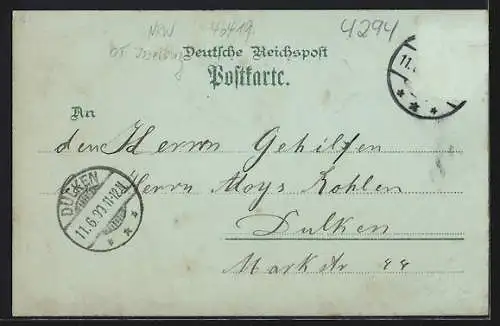 NRW 46419
4294
bei Isselburg
Deutsche Reichspost
Postkarte.
11.6
An
den Herrn Gehilfen
Herrn Aloys Kohlen
Dulken
Markstr 44
DÜLKEN
11.6.99.11-12V.